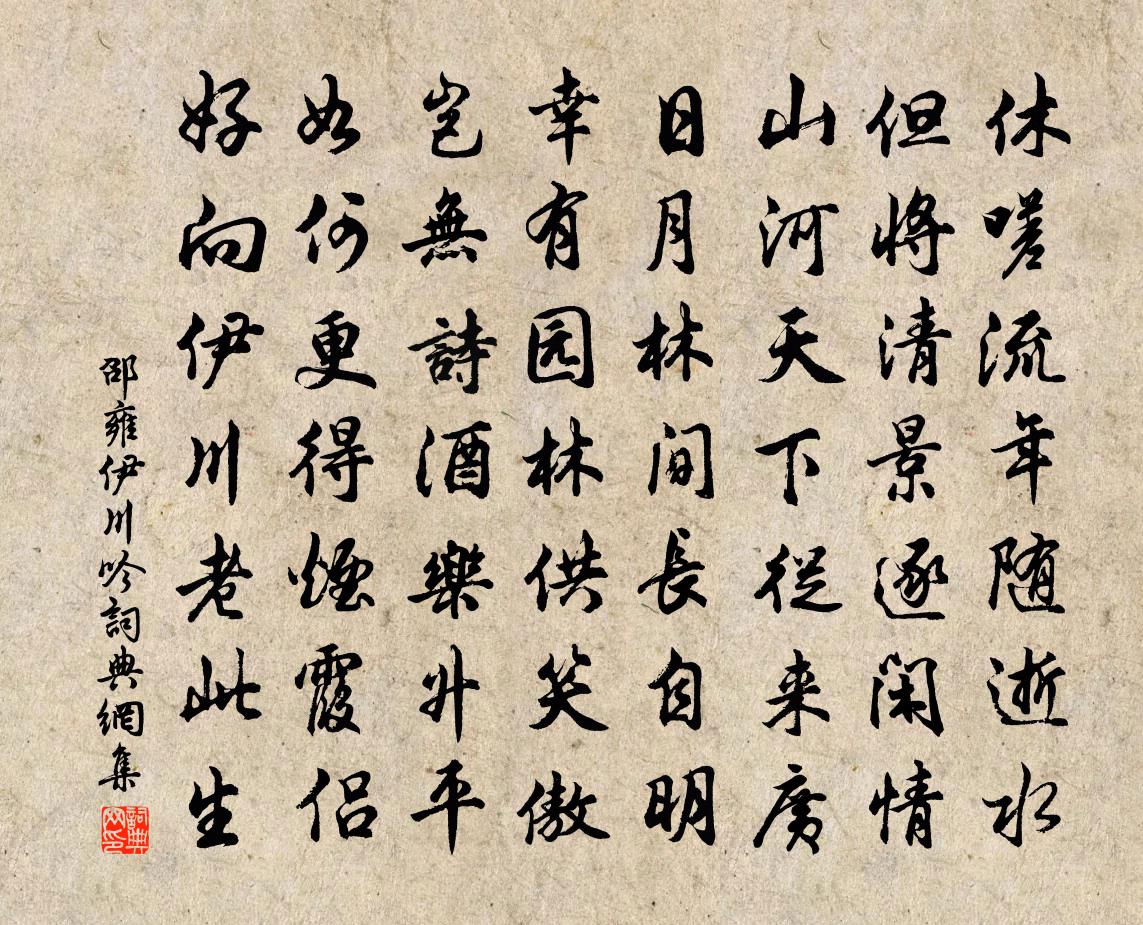 休嗟流年随逝水
但将清景逐闲情
山河天下從来廣
日月林间長自明
幸有园林供笑傲
岂無詩酒樂升平
如何更得煙霞侣
好向伊川老此生
邵雍伊川吟詞典網集
詞典网印